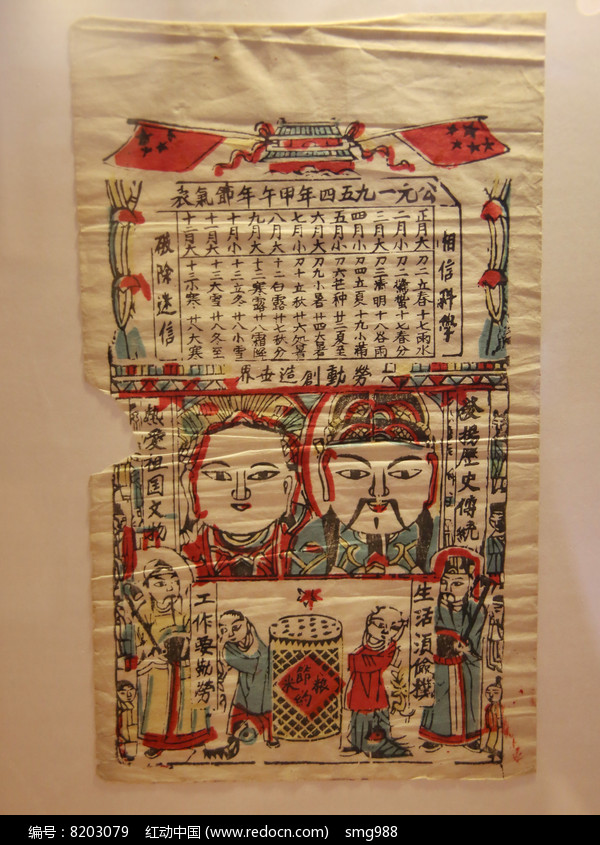 公元一九五四年甲午年節氣表
相信科學
正月大 刀二立春 十七雨水
二月小 刀二驚蟄 十七春分
三月大 刀三清明 十八谷雨
四月小 刀四立夏 十九小滿
五月小 刀六芒种 廿二夏至
六月大 刀九小暑 廿四大暑
七月小 刀十立秋 廿六処暑
八月大 十二白露 廿七秋分
九月大 十二寒露 廿八霜降
十月小 十三立冬 廿八小雪
十一月大 十三大雪 廿八冬至
十二月大 十三小寒 廿八大寒
破除迷信
勞動創造世界
發揚歷史傳統
熱愛祖国文物
生活須儉樸
工作要勤勞
節約粮米
编号：8203079 红动中国 (www.redocn.com) smg988